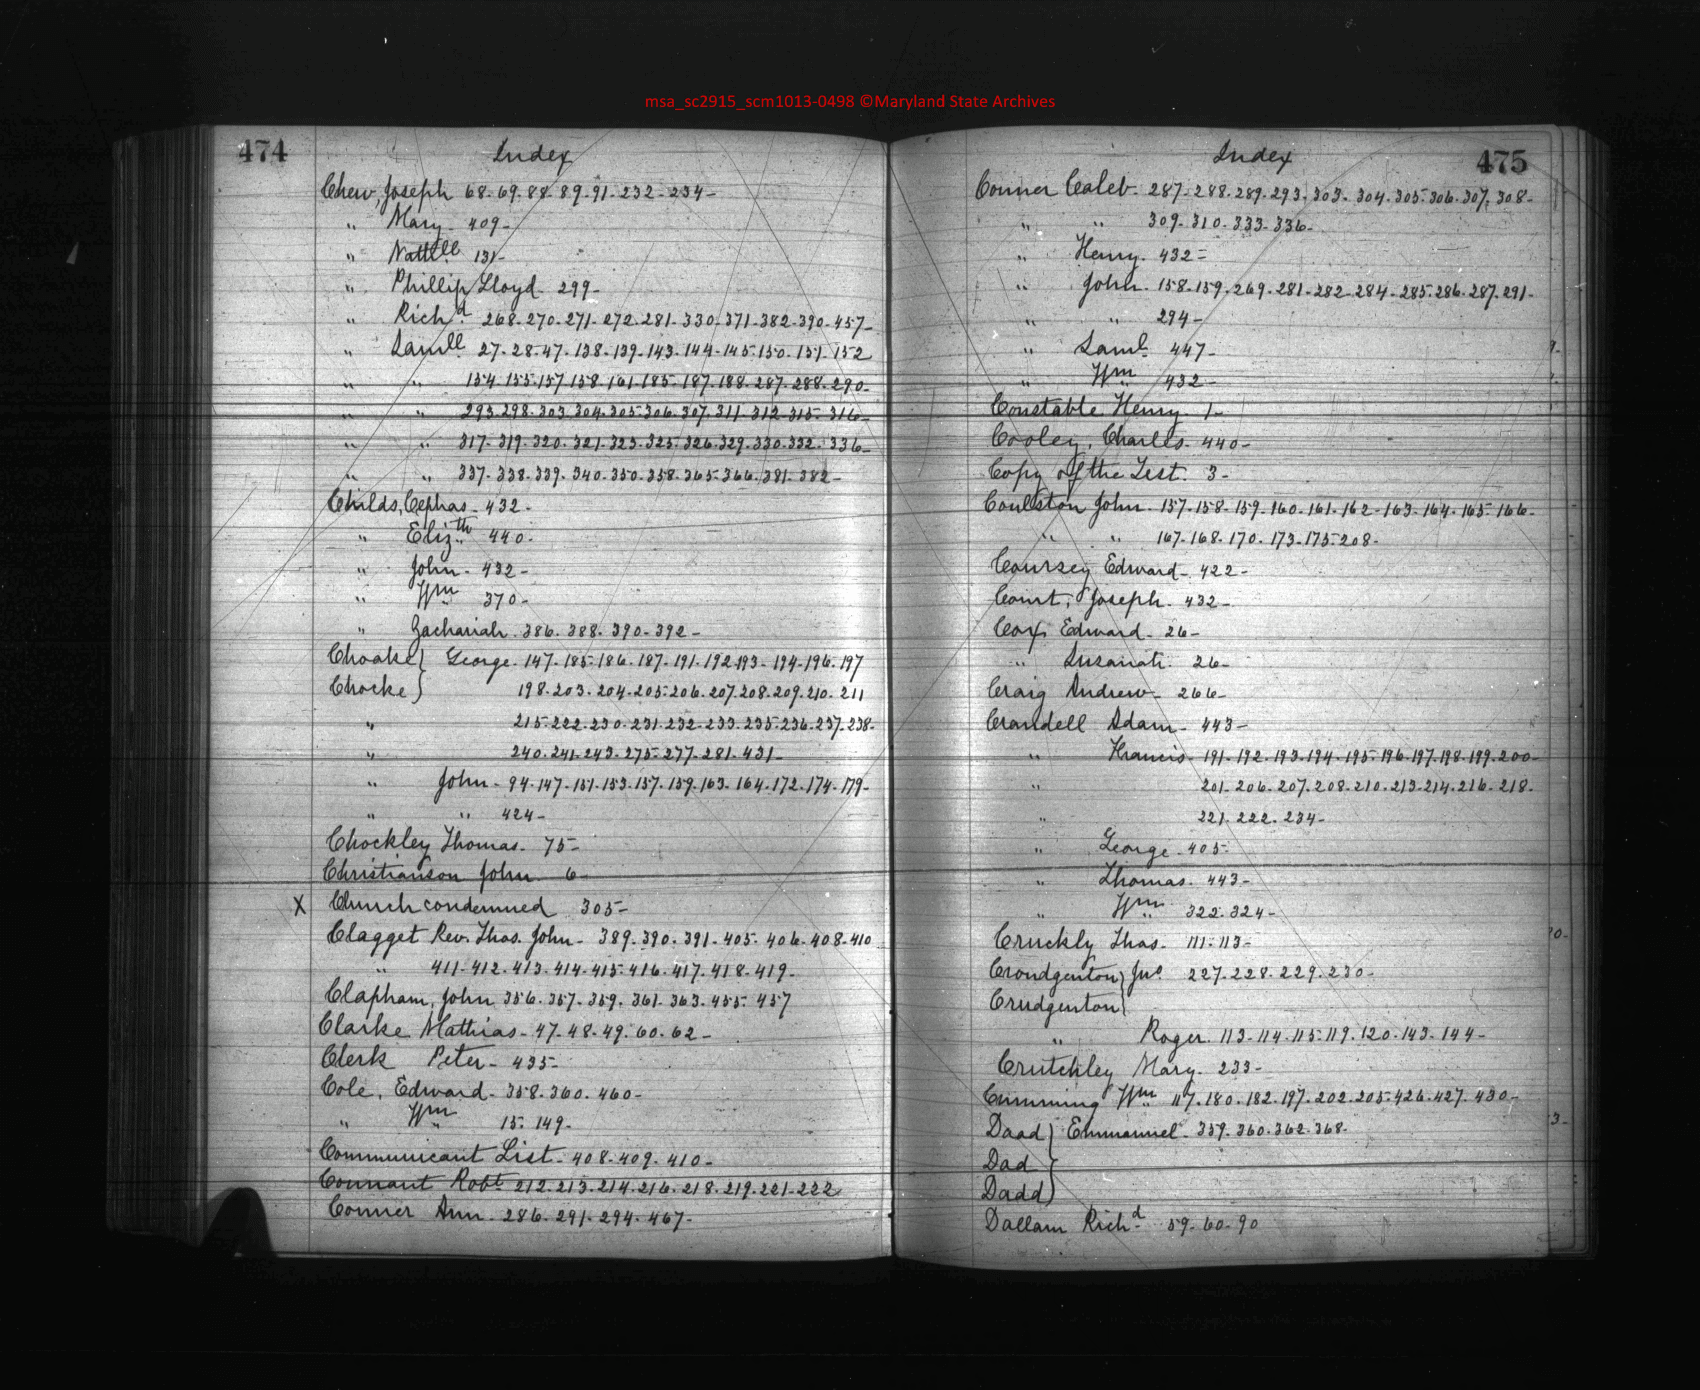 msa_sc2915_scm1013-0498 ©Maryland State Archives
474
Index
Chew, Joseph 68-69-88-89-91-232-234-
" Mary- 409-
" Nattell 131-
" Phillip Lloyd- 299-
" Richd 268-270-271-272-281-330-371-382-390-457-
" Samll 27-28-47-138-139-143-144-145-150-151-152
" " 154-155-157-158-161-185-187-188-287-288-290-
" " 293-298-303-304-305-306-307-311-312-315-316-
" " 317-319-320-321-323-325-326-329-330-332-336-
" " 337-338-339-340-350-358-365-366-381-382-
Childs, Cephas- 432-
" Elizth 440-
" John- 432-
" Wm 370-
" Zachariah- 386-388-390-392-
Choake } George- 147-185-186-187-191-192-193-194-196-197
Chocke } 198-203-204-205-206-207-208-209-210-211
" 215-222-230-231-232-233-235-236-237-238-
" 240-241-243-275-277-281-431-
" John- 94-147-151-153-157-159-163-164-172-174-179-
" " 424-
Chockley Thomas- 75-
Christianson John- 6-
X Church condemned 305-
Clagget Rev. Thos. John- 389-390-391-405-406-408-410
" 411-412-413-414-415-416-417-418-419-
Clapham, John 356-357-359-361-363-455-457
Clarke Mathias- 47-48-49-60-62-
Clerk Peter- 435-
Cole, Edward- 358-360-460-
" Wm 15-149-
Communicant List- 408-409-410-
Connant Robt 212-213-214-216-218-219-221-222
Conner Ann- 286-291-294-467-
475
Index
Conner Caleb- 287-288-289-293-303-304-305-306-307-308-
" " 309-310-333-336-
" Henry- 432-
" John- 158-159-269-281-282-284-285-286-287-291-
" " 294-
" Saml 447-
" Wm 432-
Constable Henry- 1-
Cooley, Charles- 440-
Copy of the Test. 3-
Coulston John- 157-158-159-160-161-162-163-164-165-166-
" " 167-168-170-173-175-208-
Coursey Edward- 422-
Court, Joseph- 432-
Cox Edward- 26-
" Susanah- 26-
Craig Andrew- 266-
Crandell Adam- 443-
" Francis- 191-192-193-194-195-196-197-198-199-200-
" 201-206-207-208-210-213-214-216-218-
" 221-222-234-
" George- 405-
" Thomas- 443-
" Wm 322-324-
Cruckly Thos- 111-113-
Croudgenton } Jno 227-228-229-230-
Crudgenton }
" Roger- 113-114-115-119-120-143-144-
Crutchley Mary- 233-
Cumming Wm 117-180-182-197-202-205-426-427-430-
Daad } Emmanuel- 359-360-362-368-
Dad }
Dadd }
Dallam Richd- 59-60-90